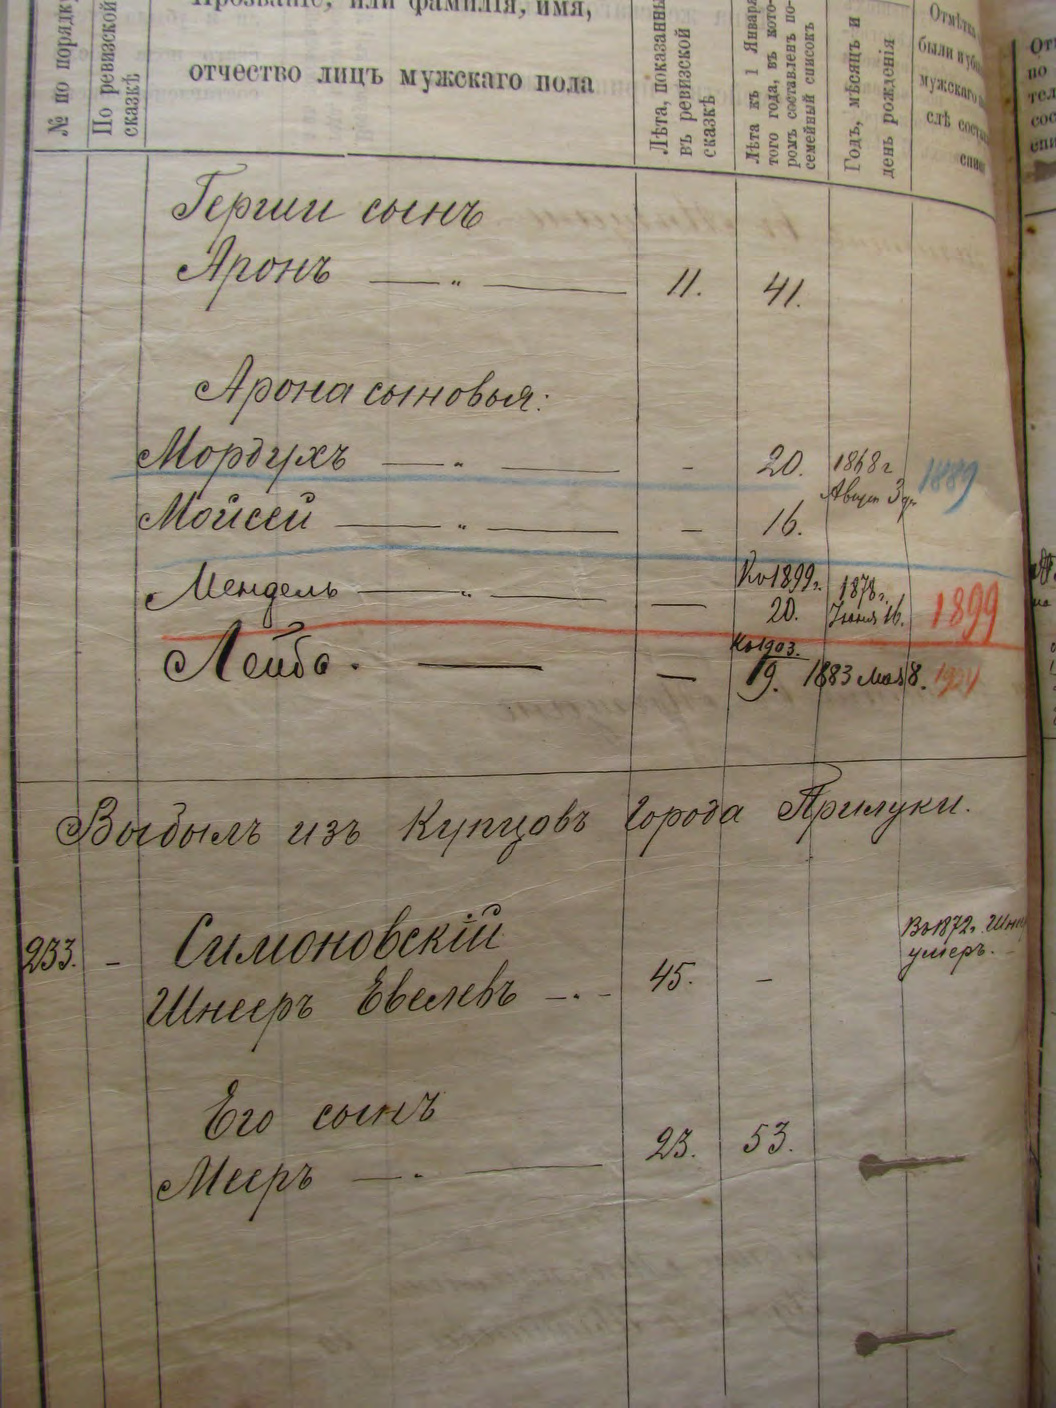 № по порядку
По ревизской сказкѣ
Прозваніе, или фамилія, имя,
отчество лицъ мужскаго пола
Лѣта, показанныя въ ревизской сказкѣ
Лѣта къ 1 Января того года, въ которомъ составленъ посемейный списокъ
Годъ, мѣсяцъ и день рожденія
Отмѣтка
были и убы
мужскаго
слѣ соста
Герши сынъ
Аронъ — „ — 11. 41.
Арона сыновья:
Мордухъ — „ — - 20. 1868 г 1889
Август 3 дн.
Мойсей — „ — - 16.
Къ 1899 г.
Мендель — „ — — 20. 1878 г. Іюня 16. 1899
Къ 1903.
Лейба. — — 19. 1883 Мая 8. 1904
Выбылъ изъ Купцовъ Города Прилуки.
Въ 1872 г.
умеръ.
233. - Симоновскій
Шнееръ Евелевъ — . - 45. -
Его сынъ
Мееръ — . — 23. 53.